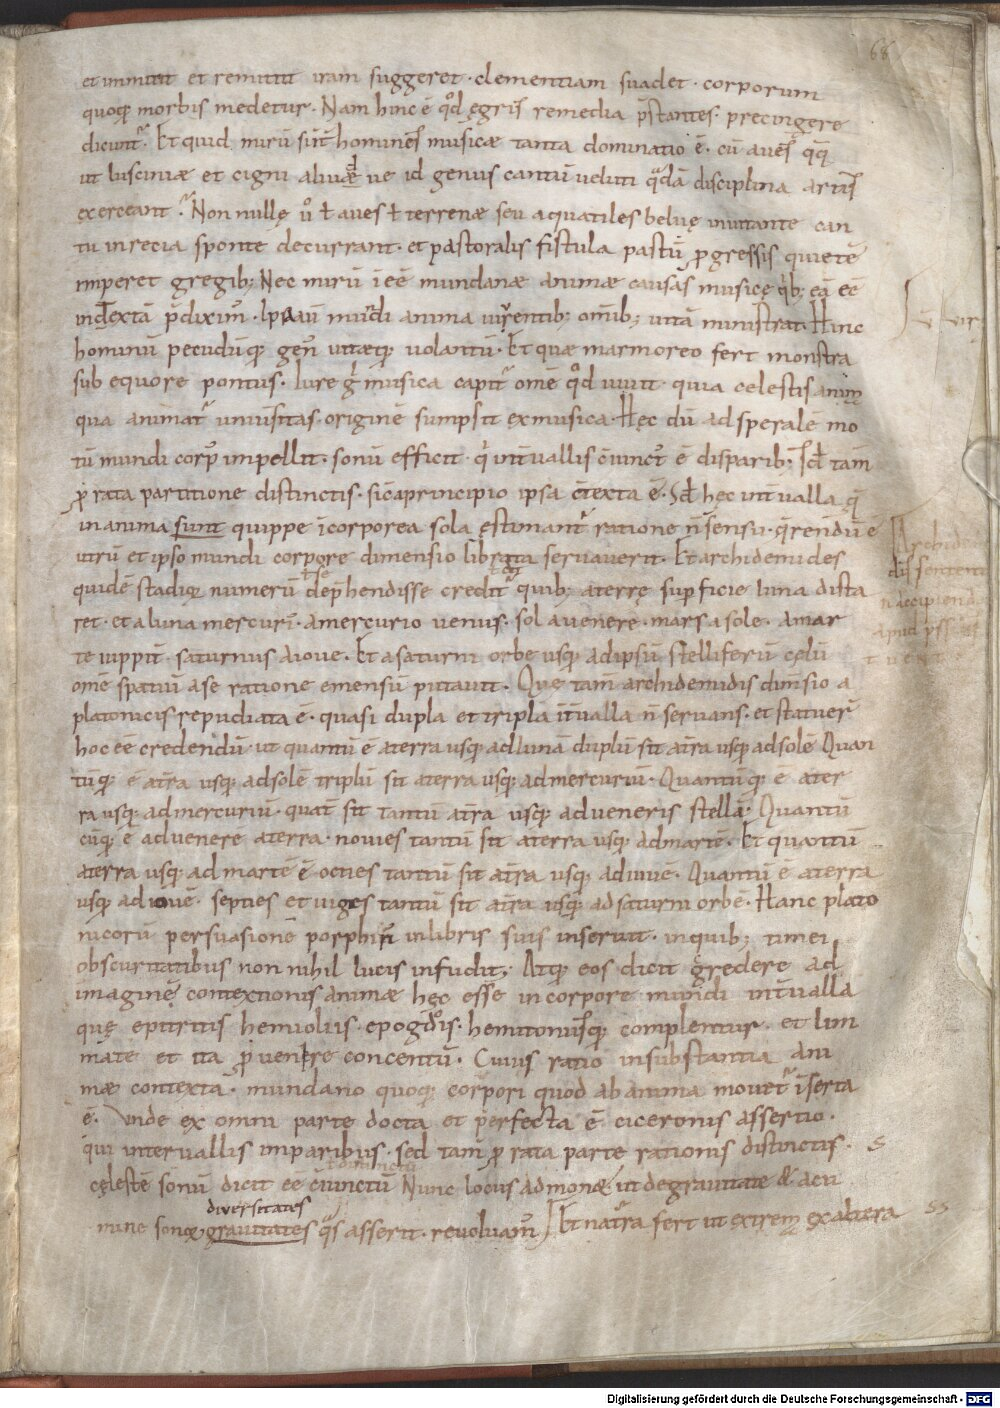 68
et immittit et remittit iram suggeret · clementiam suadet · corporum
quoq; morbis medetur · Nam hinc ē qd̄ ęgris remedia p̄stantes · precingere
dicunt᷑ · Et quid mirū sint̄ homines musicæ tanta dominatio ē · cū aues q̄q;
ut lusciniæ et cigni aliuæ ue id genus cantū ueluti q̄dā disciplina artis
exerceant · Non nullę u̇ ł aues ł terrenæ seu aquatiles beluę inuitante can
tu in recia sponte decurrant · et pastoralis fistula pastū p̱gressis quietē
imperet gregib; Nec mirū ī eē mundanæ animæ causas musicę q̇b; eā eē
īntextā p̄diximꝰ · Ipsa aū mundi anima uiuentib; omīb; uitā ministrat · Hinc
hominū pecudūq; genꝰ uitæq; uolantū · Et quæ marmoreo fert monstra
sub equore pontus · Iure g̊ musica capit᷑ omē qd̄ uiuit · quia celestis anim
qua animat᷑ uniūsitas · originē sumpsit ex musica · Hęc dū ad speralē mo
tū mundi corpꝰ impellit · sonū efficit · q̇ int̄uallis c̄iunctꝰ ē disparib; Sed tam̄
p̱ rata partitione distinctis · sic a principio ipsa c̄texta ē · Sed hęc int̄ualla q̄
in anima sunt quippe īcorporea sola ęstimant᷑ ratione n̄ sensu · q̄rendū ē
utrū et ipso mundi corpore dimensio librata seruauerit · Et archidemides
quidē stadioꝝ numerū dep̄hendisse credit᷑ quib; a terrę sup̱ficie luna dista
ret · et a luna mercuriꝰ · a mercurio uenus · sol a uenere · mars a sole · a mar
te iuppit̄ · saturnus a ioue · Et a saturni orbe usq; ad ipsū stelliferū cęlū
omē spatiū a se ratione emensū putauit · Quę tam̄ archidemidis dim̄sio a
platonicis repudiata ē · quasi dupla et tripla īt̄ualla n̄ seruans · et statuer̄
hoc eē credendū · ut quantū ē a terra usq; ad lunā duplū sit a t̄ra usq; ad solē Quan
tūq; ē a t̄ra usq; ad solē triplū sit a terra usq; ad mercuriū · Quantūq; ē a ter
ra usq; ad mercuriū · quat̄ sit tantū a t̄ra usq; ad ueneris stellā · Quantū
cūq; ē ad uenere a terra · nouies tantū sit a terra usq; ad martē · Et quantū
a terra usq; ad martē ē octies tantū sit a t̄ra usq; ad iouē · Quantū ē a terra
usq; ad iouē · septies et uiges tantū sit a t̄ra usq; ad saturni orbē · Hanc plato
nicorū persuasionē porphiriꝰ in libris suis inseruit · in quib; timei
obscuritatibus non nihil lucis infudit · Atq; eos dicit c̄redere ad
imaginē contextionis animæ hęc esse in corpore mundi int̄ualla
quę epitritis hemioliis · epogdois · hemitoniisq; complentur · et lim
mate et ita p̱uenire concentū · Cuius ratio in substantia ani
mæ contexta · mundano quoq; corpori quod ab anima mouet᷑ īserta
ē · Vnde ex omni parte docta et perfecta ē ciceronis assertio ·
qui interuallis imparibus · sed tam̄ p̱ rata parte rationis distinctis · S
cęlestē sonū dicit eē c̄iunctū Nunc locus admonæ ut de grauitate & acu
diuersitates
mine sonoꝝ grauitates q̄s asserit · reuoluam̄ Et nat᷑ra fert ut extrema ex altera SS
Archidem
dis sententi
n̄ accipiend